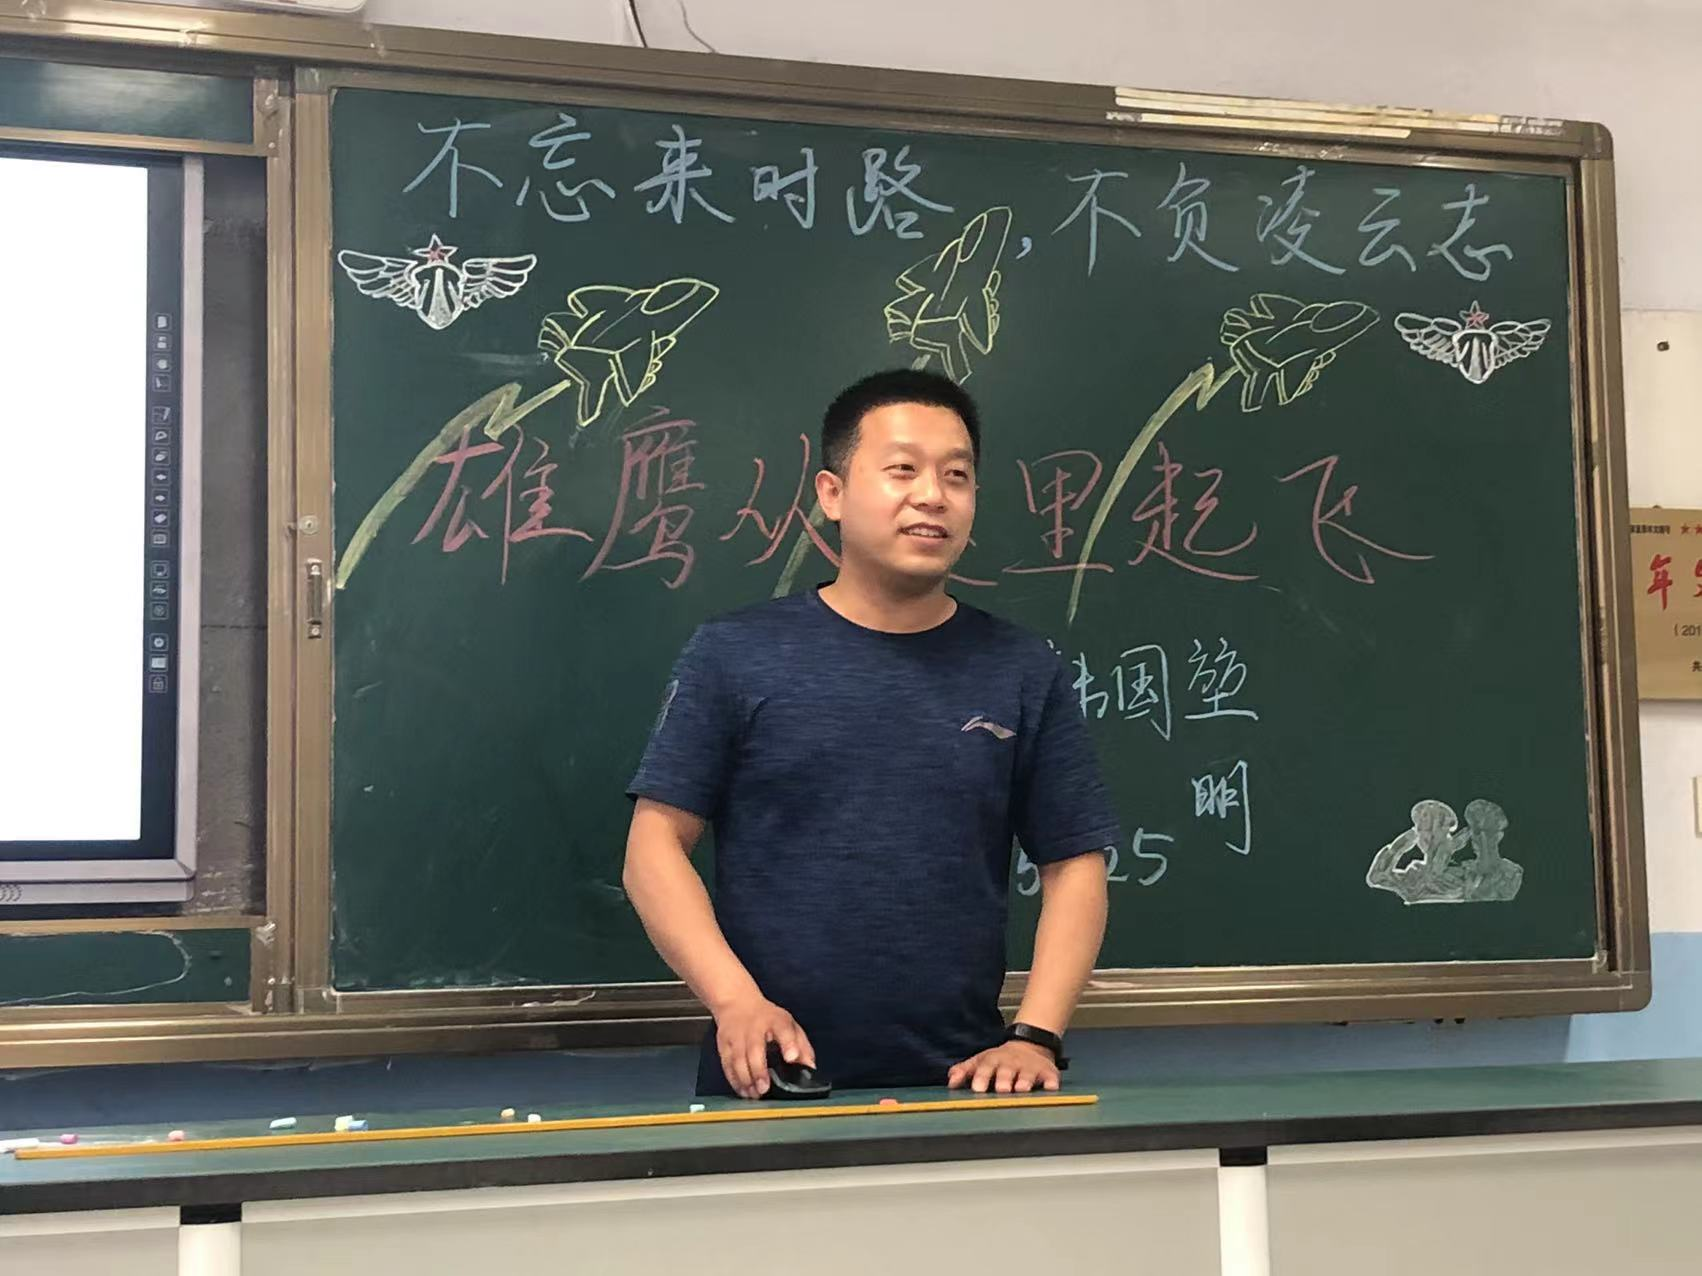 不忘来时路，不负凌云志
雄鹰从 里起飞
韩国堃
明
5 25
年
(201